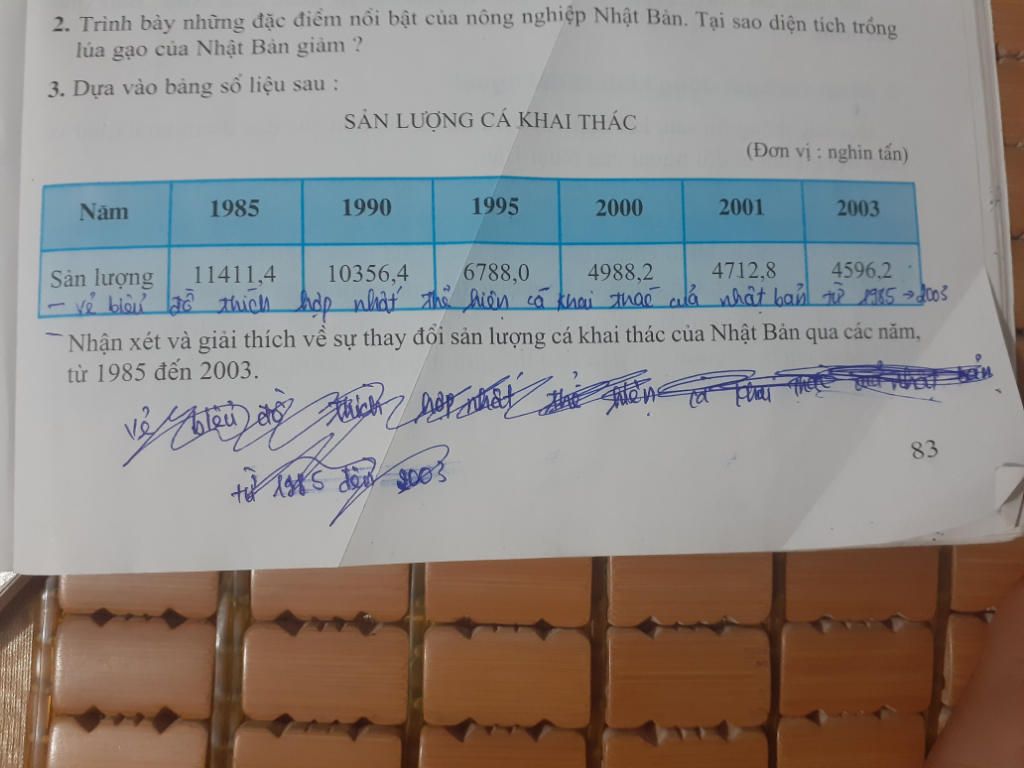 2. Trình bày những đặc điểm nổi bật của nông nghiệp Nhật Bản. Tại sao diện tích trồng
lúa gạo của Nhật Bản giảm ?
3. Dựa vào bảng số liệu sau :
SẢN LƯỢNG CÁ KHAI THÁC
(Đơn vị : nghìn tấn)
Năm 1985 1990 1995 2000 2001 2003
Sản lượng 11411,4 10356,4 6788,0 4988,2 4712,8 4596,2
- vẽ biểu đồ thích hợp nhất thể hiện cá khai thác của nhật bản từ 1985 → 2003
- Nhận xét và giải thích về sự thay đổi sản lượng cá khai thác của Nhật Bản qua các năm,
từ 1985 đến 2003.
vẽ biểu đồ thích hợp nhất thể hiện cá khai thác của nhật bản
từ 1985 đến 2003
83